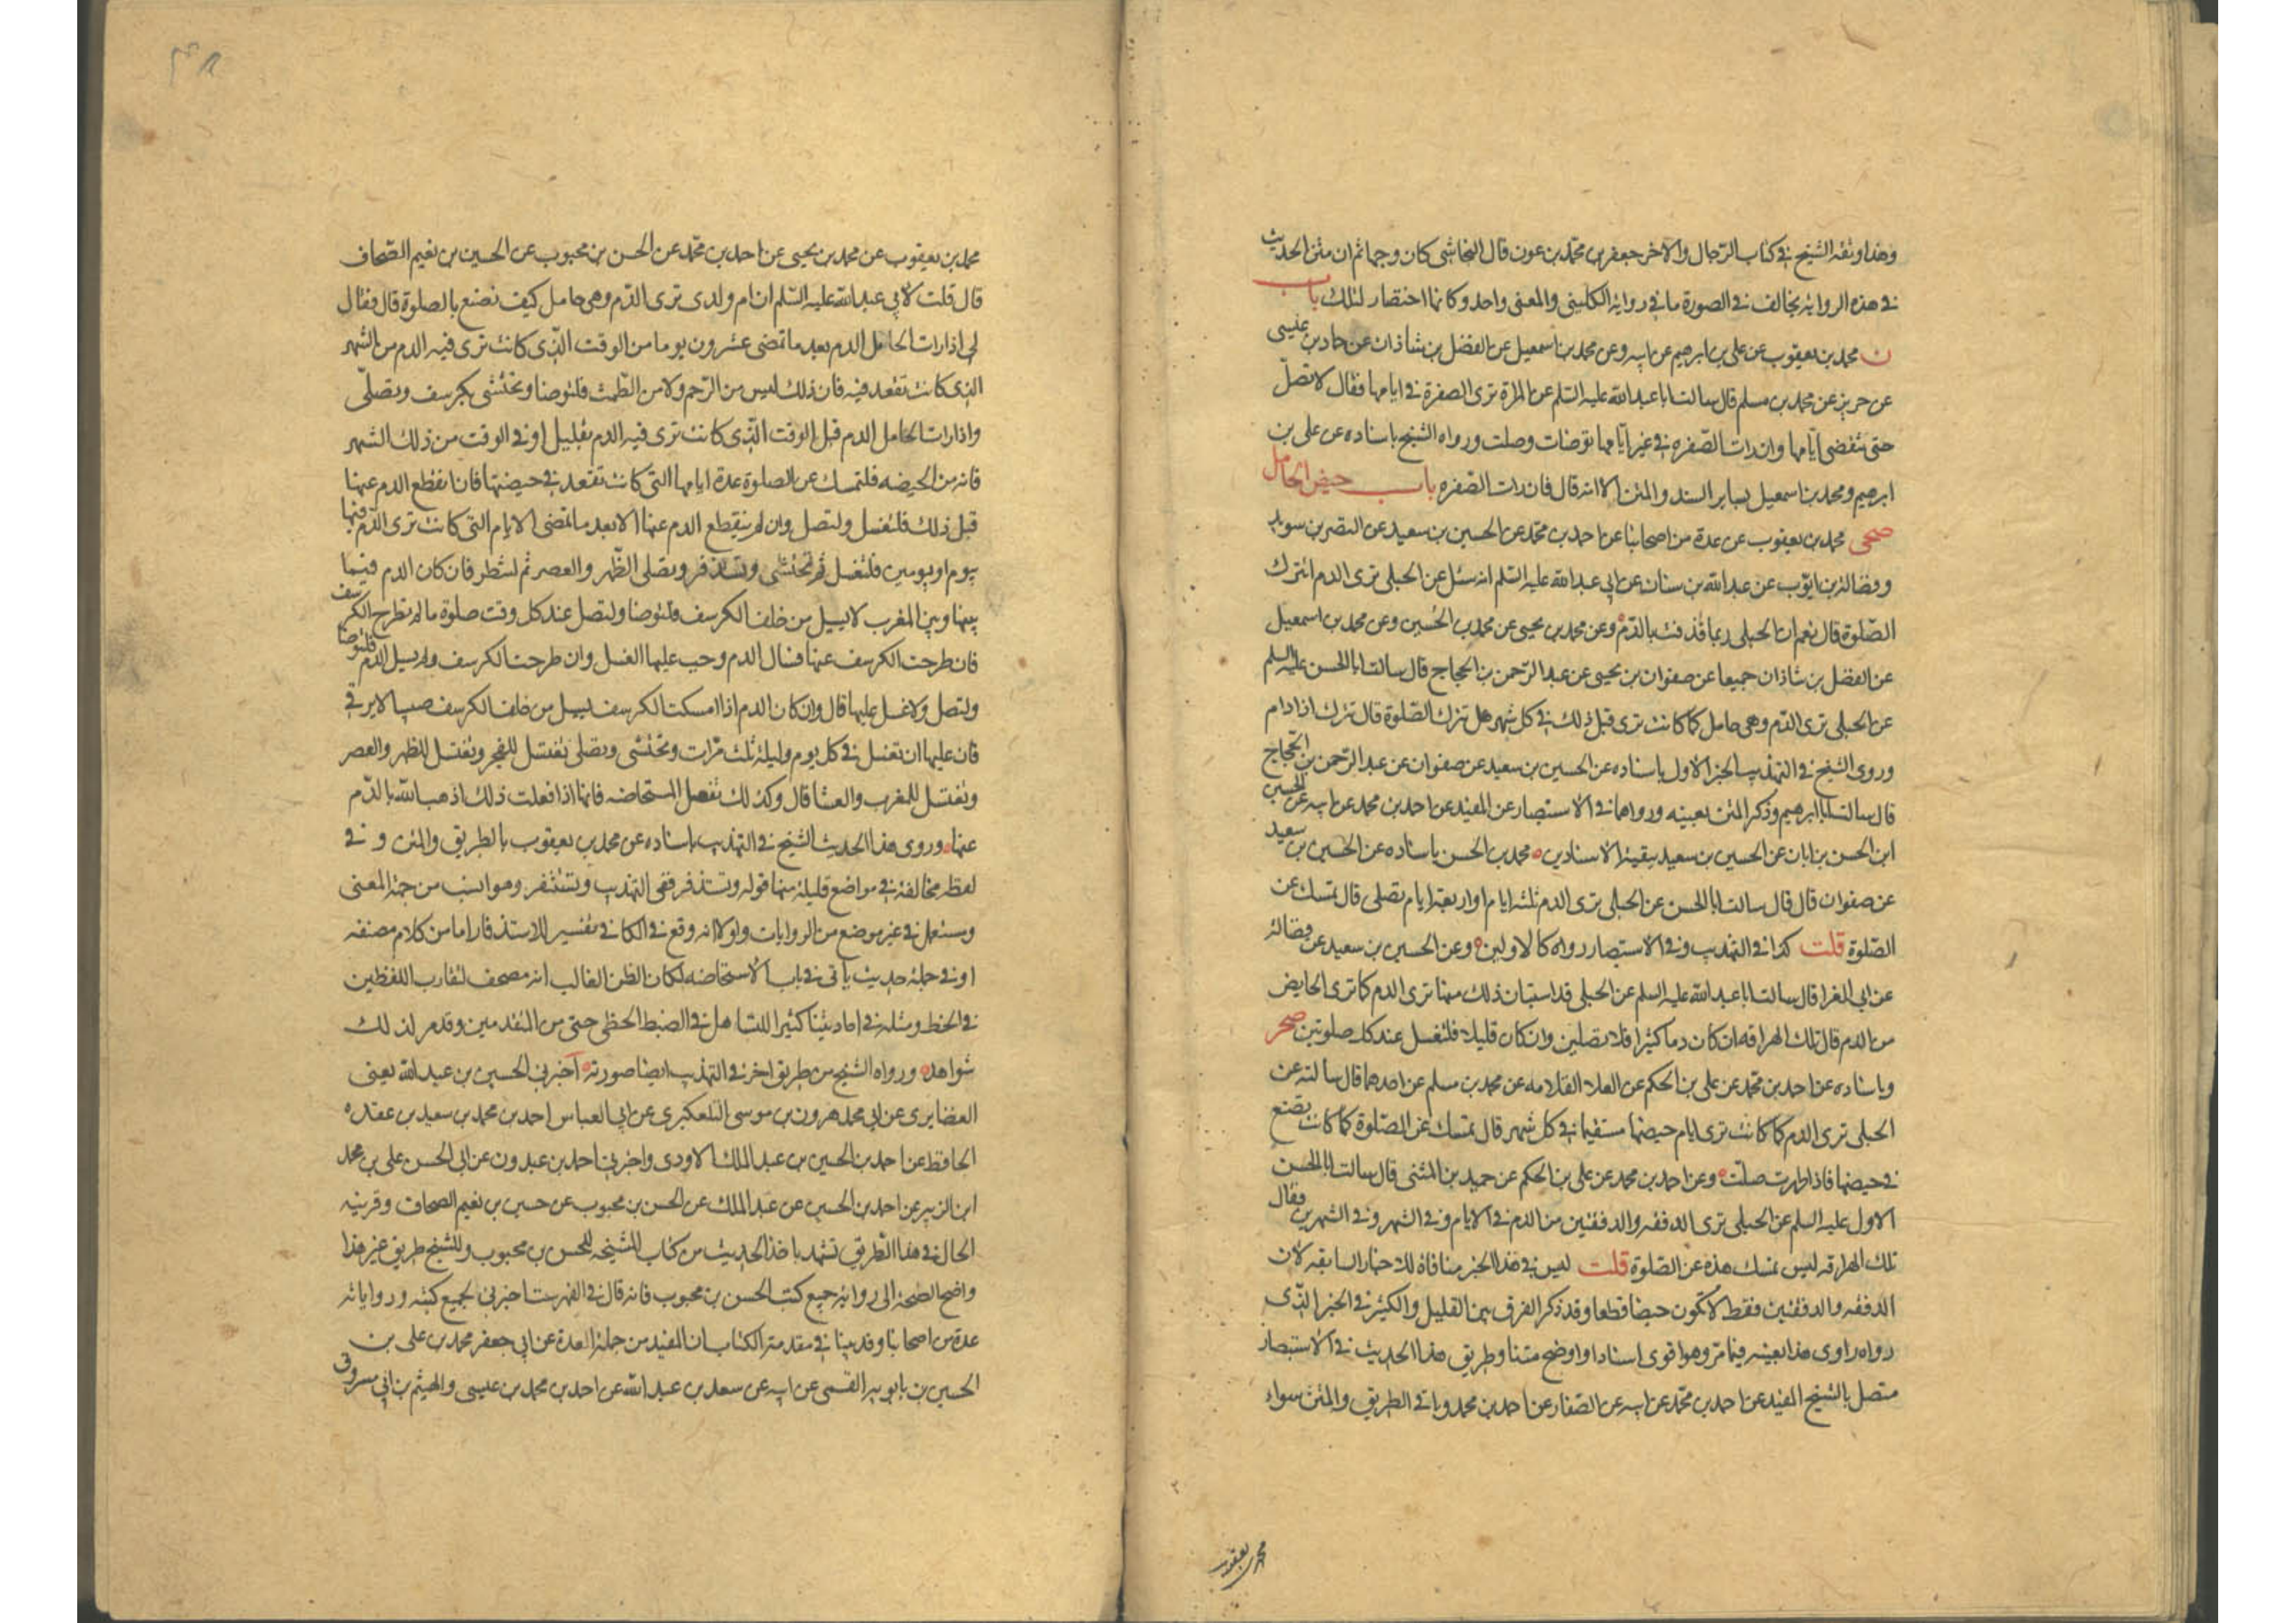 وهذا وثقه الشيخ في كتاب الرجال والاخر جعفر بن محمد بن عون قال النجاشي كان وجها ثم ان متن الحديث
في هذه الرواية يخالف في الصورة ما في رواية الكليني والمعنى واحد وكانها اختصار لتلك باب
ن محمد بن يعقوب عن علي بن ابرهيم عن ابيه وعن محمد بن اسمعيل عن الفضل بن شاذان عن حماد بن عيسى
عن حريز عن محمد بن مسلم قال سالت ابا عبد الله عليه السلم عن المراة ترى الصفرة في ايامها فقال لا تصل
حتى تنقضي ايامها وان رات الصفره في غير ايامها توضات وصلت ورواه الشيخ باسناده عن علي بن
ابرهيم ومحمد بن اسمعيل بساير السند والمتن الا انه قال فان رات الصفره باب حيض الحامل
صحي محمد بن يعقوب عن عدة من اصحابنا عن احمد بن محمد عن الحسين بن سعيد عن النضر بن سويد
وفضالة بن ايوب عن عبد الله بن سنان عن ابي عبد الله عليه السلم انه سئل عن الحبلى ترى الدم اتترك
الصلوة قال نعم ان الحبلى ربما قذفت بالدم ه وعن محمد بن يحيى عن محمد بن الحسين وعن محمد بن اسمعيل
عن الفضل بن شاذان جميعا عن صفوان بن يحيى عن عبد الرحمن بن الحجاج قال سالت ابا الحسن عليه السلم
عن الحبلى ترى الدم وهي حامل كما كانت ترى قبل ذلك في كل شهر هل تترك الصلوة قال تترك اذا دام
وروى الشيخ في التهذيب الخبر الاول باسناده عن الحسين بن سعيد عن صفوان عن عبد الرحمن بن الحجاج
قال سالت ابا ابرهيم وذكر المتن بعينه ورواهما في الاستبصار عن المفيد عن احمد بن محمد عن ابيه عن الحسين
ابن الحسن بن ابان عن الحسين بن سعيد ببقية الاسنادين ه محمد بن الحسن باسناده عن الحسين بن سعيد
عن صفوان قال قال سالت ابا الحسن عن الحبلى ترى الدم ثلثه ايام او اربعة ايام تصلي قال تمسك عن
الصلوة قلت كذا في التهذيب وفي الاستبصار رواه كالاولين ه وعن الحسين بن سعيد عن فضالة
عن ابي المغرا قال سالت ابا عبد الله عليه السلم عن الحبلى قد استبان ذلك منها ترى الدم كما ترى الحايض
من الدم قال تلك الهراقه ان كان دما كثيرا فلا تصلين وان كان قليلا فلتغسل عند كل صلوتين صحر
وباسناده عن احمد بن محمد عن علي بن الحكم عن العلا القلا مه عن محمد بن مسلم عن احدهما قال سالته عن
الحبلى ترى الدم كما كانت ترى ايام حيضها مستقيما في كل شهر قال تمسك عن الصلوة كما كانت تصنع
في حيضها فاذا طهرت صلت ه وعن احمد بن محمد عن علي بن الحكم عن حميد بن المثنى قال سالت ابا الحسن
الاول عليه السلم عن الحبلى ترى الدفقه والدفقتين من الدم في الايام وفي الشهر وفي الشهرين فقال
تلك الهراقه ليس تمسك هذه عن الصلوة قلت ليس في هذا الخبر منافاة للاخبار السابقه لان
الدفقه والدفقتين فقط لا تكون حيضا قطعا وقد ذكر الفرق بين القليل والكثير في الخبر الذي
رواه راوي هذا بعينه فيما مر وهو اقوى اسنادا واوضح متنا وطريق هذا الحديث في الاستبصار
متصل بالشيخ المفيد عن احمد بن محمد عن ابيه عن الصفار عن احمد بن محمد وباقي الطريق والمتن سواء
محمد بن يعقوب
محمد بن يعقوب عن محمد بن يحيى عن احمد بن محمد عن الحسن بن محبوب عن الحسين بن نعيم الصحاف
قال قلت لابي عبد الله عليه السلم ان ام ولدي ترى الدم وهي حامل كيف تصنع بالصلوة قال فقال
لي اذا رات الحامل الدم بعد ما تمضي عشرون يوما من الوقت الذي كانت ترى فيه الدم من الشهر
الذي كانت تقعد فيه فان ذلك ليس من الرحم ولا من الطمث فلتوضا وتحتشي بكرسف وتصلي
واذا رات الحامل الدم قبل الوقت الذي كانت ترى فيه الدم بقليل او في الوقت من ذلك الشهر
فانه من الحيضه فلتمسك عن الصلوة عدة ايامها التي كانت تقعد في حيضتها فان انقطع الدم عنها
قبل ذلك فلتغسل ولتصل وان لم ينقطع الدم عنها الا بعد ما تمضي الايام التي كانت ترى الدم فيها
بيوم او يومين فلتغسل ثم تحتشي وتستذفر وتصلي الظهر والعصر ثم لتنظر فان كان الدم فيما
بينها وبين المغرب لا يسيل من خلف الكرسف فلتوضا ولتصل عند كل وقت صلوة ما لم تطرح الكرسف
فان طرحت الكرسف عنها فسال الدم وجب عليها الغسل وان طرحت الكرسف ولم يسل الدم فلتوضا
ولتصل ولا غسل عليها قال وان كان الدم اذا امسكت الكرسف يسيل من خلف الكرسف صبيبا لا يرقى
فان عليها ان تغتسل في كل يوم وليلة ثلث مرات وتحتشي وتصلي تغتسل للفجر وتغتسل للظهر والعصر
وتغتسل للمغرب والعشا قال وكذلك تفعل المستحاضه فانها اذا فعلت ذلك اذهب الله بالدم
عنها ه وروى هذا الحديث الشيخ في التهذيب باسناده عن محمد بن يعقوب بالطريق والمتن و في
لفظه مخالفة في مواضع قليلة منها قوله وتستذفر ففي التهذيب وتستثفر وهو انسب من جهة المعنى
ومستعمل في غير موضع من الروايات ولولا انه وقع في الكافي تفسير للاستذفار اما من كلام مصنفه
او في جملة حديث ياتي في باب الاستحاضه لكان الظن الغالب انه مصحف لتقارب اللفظين
في الخط ومثله في احاديثنا كثيرا للتساهل في الضبط الخطي حتى من المتقدمين وقد مر لذلك
شواهد ه ورواه الشيخ من طريق اخر في التهذيب ايضا صورته ه اخبرني الحسين بن عبد الله يعني
الغضايري عن ابي محمد هرون بن موسى التلعكبري عن ابي العباس احمد بن محمد بن سعيد بن عقده
الحافظ عن احمد بن الحسين بن عبد الملك الاودي واخبرني احمد بن عبدون عن ابي الحسن علي بن محمد
ابن الزبير عن احمد بن الحسين عن عبد الملك عن الحسن بن محبوب عن حسين بن نعيم الصحاف وقرينة
الحال في هذا الطريق تشهد باخذ الحديث من كتاب المشيخه للحسن بن محبوب وللشيخ طريق غير هذا
واضح الصحة الى رواية جميع كتب الحسن بن محبوب فانه قال في الفهرست اخبرني بجميع كتبه ورواياته
عدة من اصحابنا وقد بينا في مقدمة الكتاب ان المفيد من جملة العدة عن ابي جعفر محمد بن علي بن
الحسين بن بابويه القمي عن ابيه عن سعد بن عبد الله عن احمد بن محمد بن عيسى والهيثم بن ابي مسروق